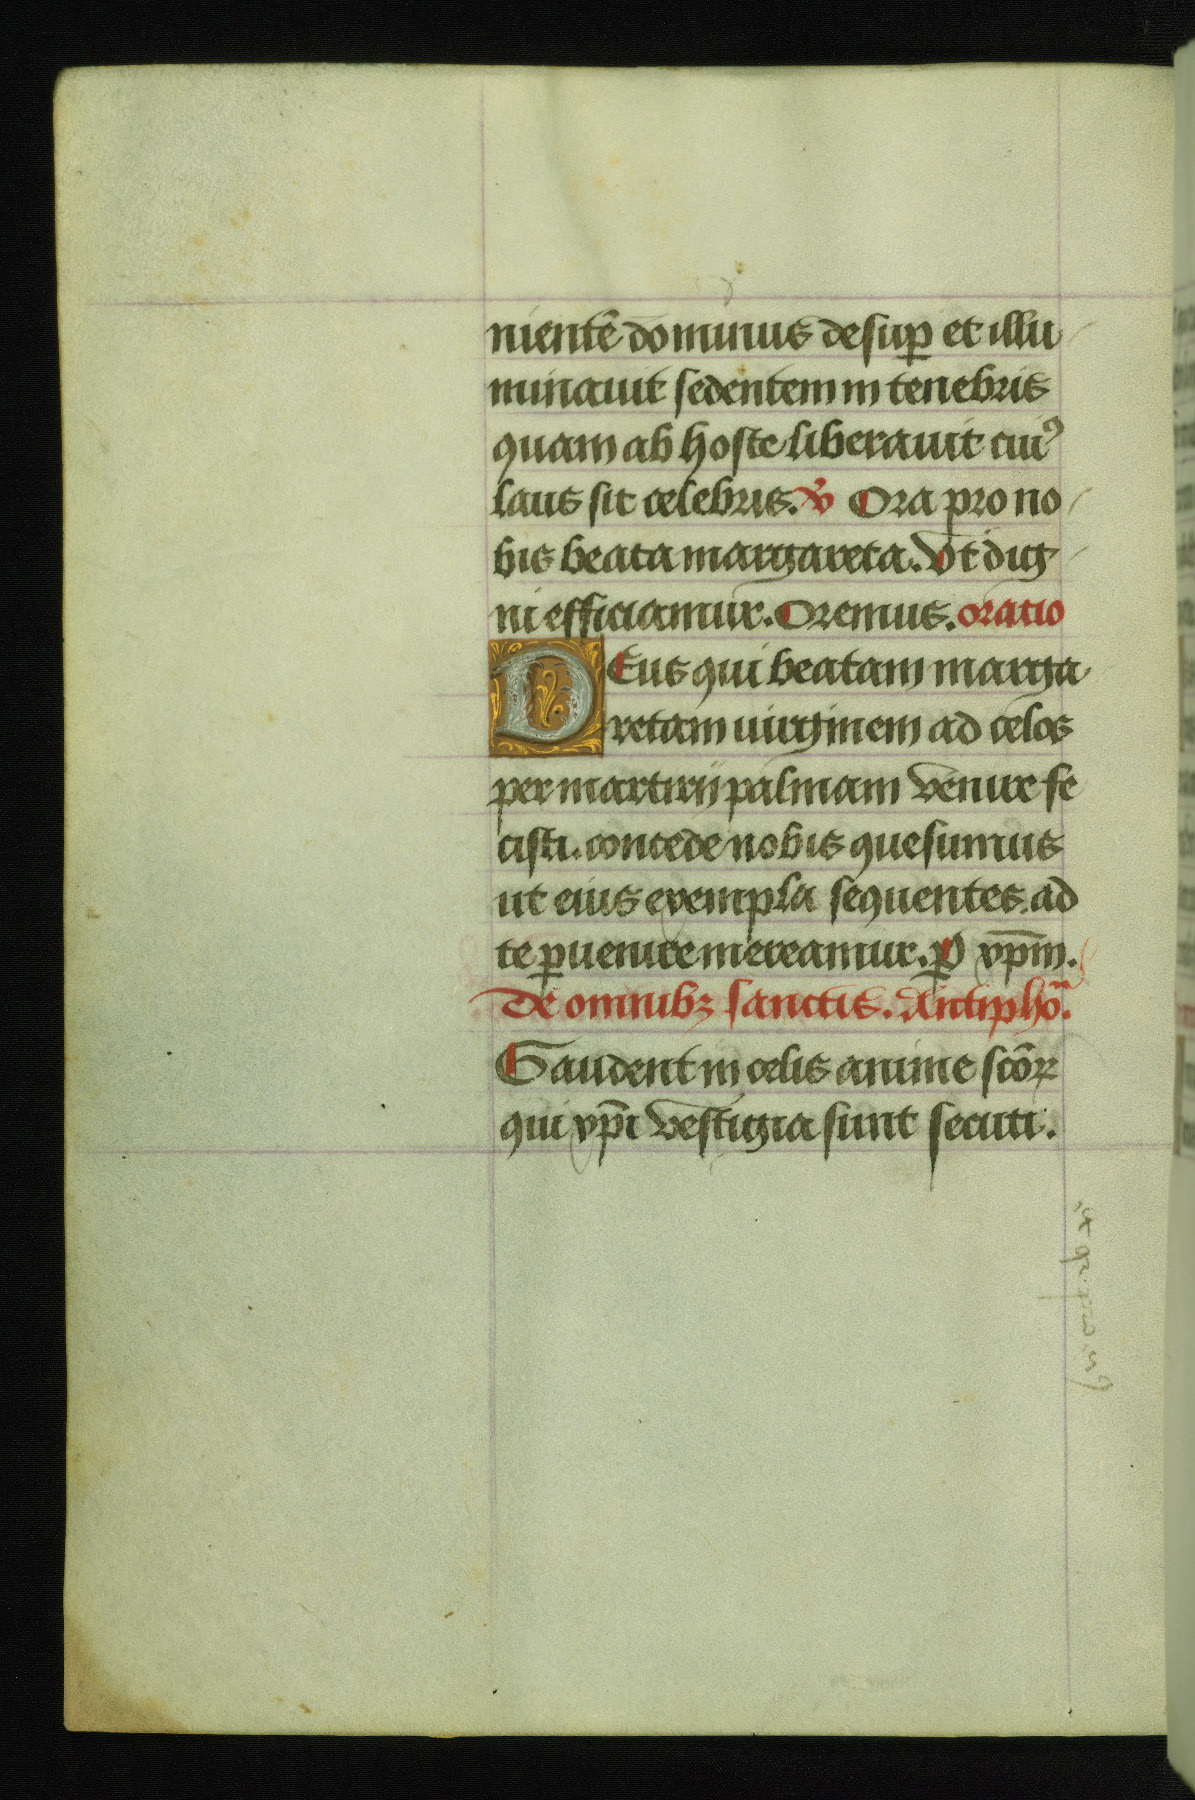 nientē dominus desup̱ et illu
minauit sedentem in tenebris
quam ab hoste liberauit cuiꝰ
laus sit celebris. ℣ Ora pro no
bis beata margareta. Vt dig
ni efficiamur. Oremus. oratio
DEus qui beatam marga
retam uirginem ad celos
per martirij palmam venire fe
cisti. concede nobis quesumus
ut eius exempla sequentes. ad
te ꝑuenire mereamur. ꝑ xp̄m.
De omnibꝫ sanctis. Antiphō.
Gaudent in celis anime sc̄oꝝ
qui xp̄i vestigia sunt secuti.